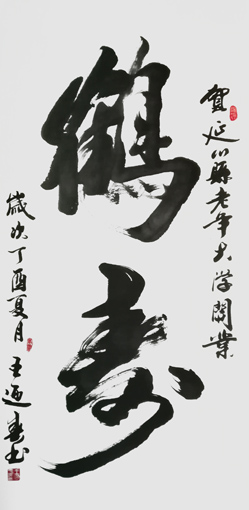 賀延川縣老年大学開業
鶴寿
歲次丁酉夏月
王迎春书